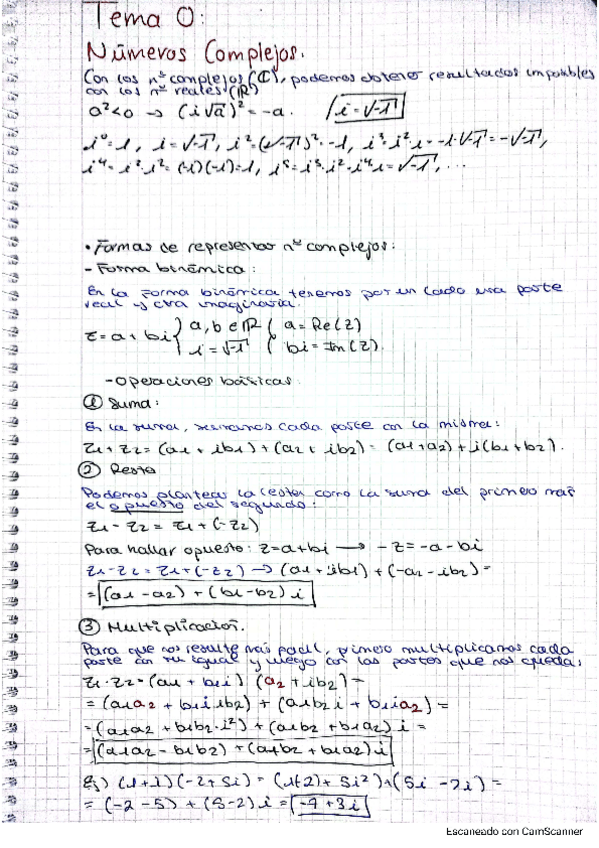 Tema 0:
Números Complejos.
Con los nº complejos (ℂ), podemos obtener resultados imposibles
con los nº reales (ℝ)
a²<0 → (i√a)² = -a. i = √-1
i⁰ = 1, i = √-1, i² = (√-1)² = -1, i³ = i²·i = -1·√-1 = -√-1,
i⁴ = i²·i² = (-1)(-1) = 1, i⁵ = i³·i² = i⁴i = √-1, ...
• Formas de representar nº complejos:
- Forma binómica:
En la forma binómica tenemos por un lado una parte
real y otra imaginaria.
z = a + bi { a, b ∈ ℝ { a = Re(z)
i = √-1 bi = Im(z).
- Operaciones básicas:
① Suma:
En la suma, sumamos cada parte con la misma:
z1 + z2 = (a1 + ib1) + (a2 + ib2) = (a1 + a2) + i(b1 + b2).
② Resta
Podemos plantear la como la suma del primero más
el opuesto del segundo:
z1 - z2 = z1 + (-z2)
Para hallar opuesto: z = a + bi → -z = -a - bi
z1 - z2 = z1 + (-z2) → (a1 + ib1) + (-a2 - ib2) =
= (a1 - a2) + (b1 - b2) i
③ Multiplicación.
Para que nos resulte más fácil, primero multiplicamos cada
parte con su igual y luego con las partes que nos queda:
z1 · z2 = (a1 + b1i) (a2 + ib2) =
= (a1a2 + b1i ib2) + (a1b2i + b1ia2) =
= (a1a2 + b1b2·i²) + (a1b2 + b1a2) i =
= (a1a2 - b1b2) + (a1b2 + b1a2) i
Ej) (1+i)(-2+5i) = (1(-2) + 5i²) + (5i - 2i) =
= (-2 - 5) + (5-2) i = -7 + 3i
Escaneado con CamScanner